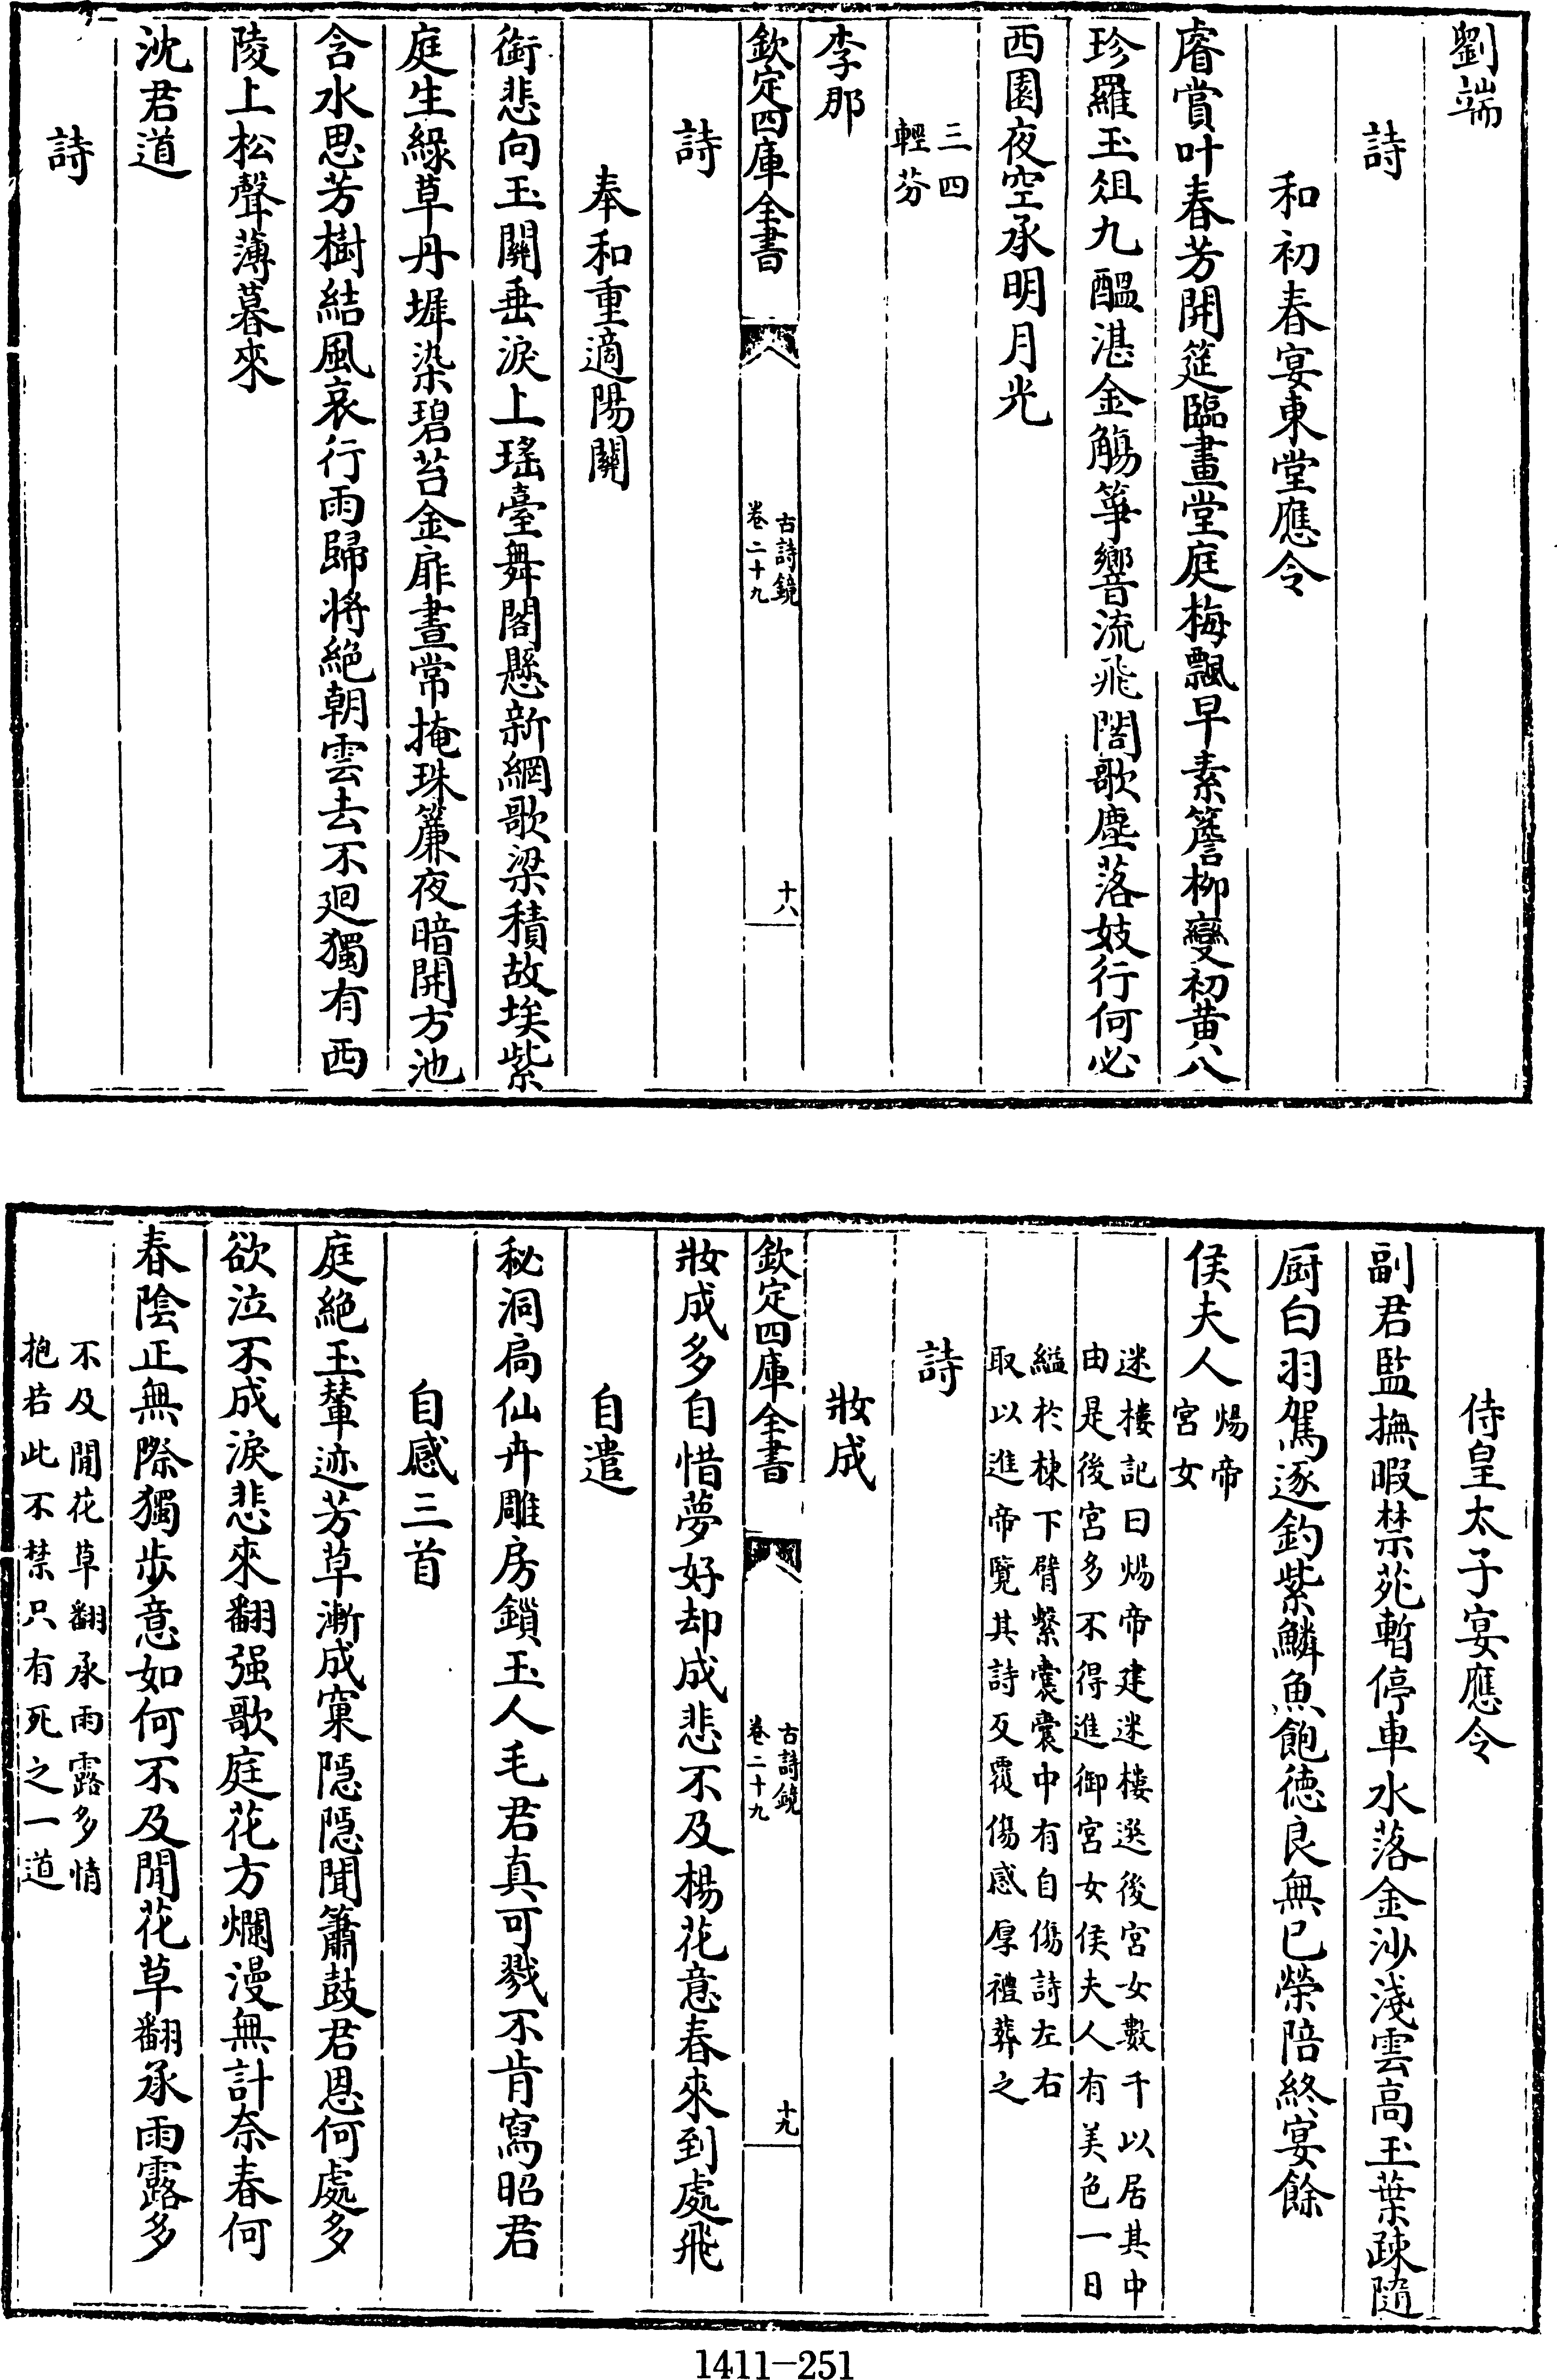 劉端
詩
和初春宴東堂應令
睿賞叶春芳開筵臨畫堂庭梅飄早素簷柳變初黄八
珍羅玉俎九醖湛金觴箏響流飛閣歌塵落妓行何必
西園夜空承明月光
三四
輕芬
李那
欽定四庫全書
古詩鏡
卷二十九
十八
詩
奉和重適陽關
銜悲向玉關垂淚上瑤臺舞閣懸新網歌梁積故埃紫
庭生綠草丹墀染碧苔金扉晝常掩珠簾夜暗開方池
含水思芳樹結風哀行雨歸將絶朝雲去不迴獨有西
陵上松聲薄暮來
沈君道
詩
侍皇太子宴應令
副君監撫暇禁苑暫停車水落金沙淺雲高玉葉疎隨
厨白羽駕逐釣紫鱗魚飽徳良無已榮陪終宴餘
侯夫人
煬帝
宮女
迷樓記曰煬帝建迷樓選後宮女數千以居其中
由是後宮多不得進御宮女侯夫人有美色一日
縊於棟下臂繫囊囊中有自傷詩左右
取以進帝覽其詩反覆傷感厚禮葬之
詩
妝成
欽定四庫全書
古詩鏡
卷二十九
十九
妝成多自惜夢好却成悲不及楊花意春來到處飛
自遣
秘洞扃仙卉雕房鎖玉人毛君真可戮不肯寫昭君
自感三首
庭絶玉輦迹芳草漸成窠隱隱聞簫鼓君恩何處多
欲泣不成淚悲來翻强歌庭花方爛漫無計奈春何
春陰正無際獨歩意如何不及閒花草翻承雨露多
不及閒花草翻承雨露多情
抱若此不禁只有死之一道
1411—251